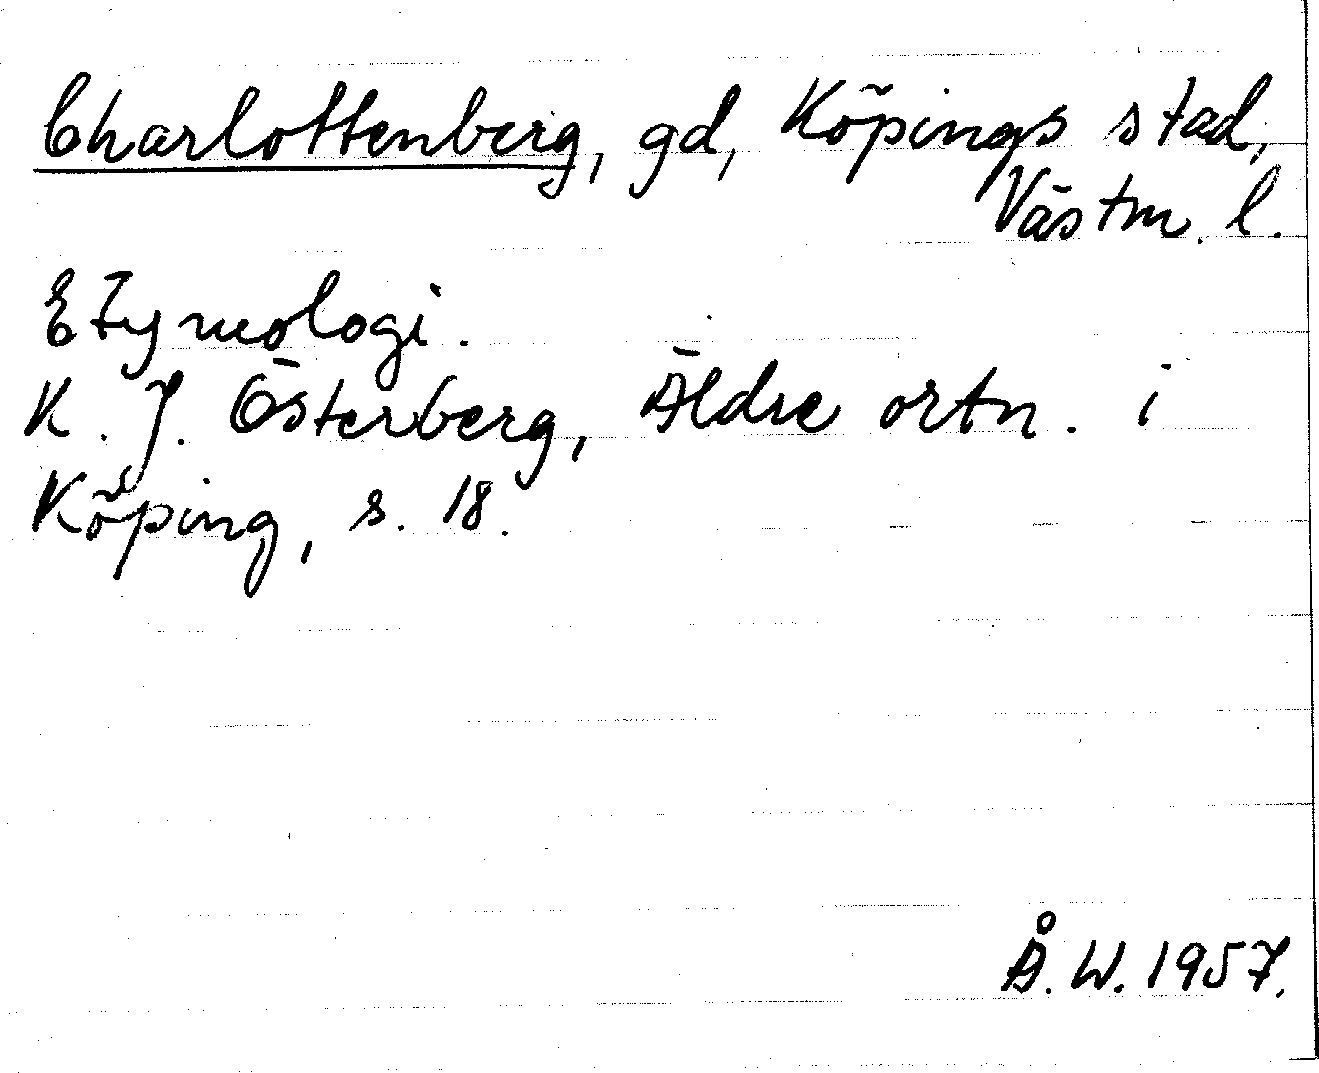 Charlottenberg, gd, Köpings stad,
Västm. l.
Etymologi.
K. J. Österberg, Äldre ortn. i
Köping, s. 18.
Å. W. 1957.